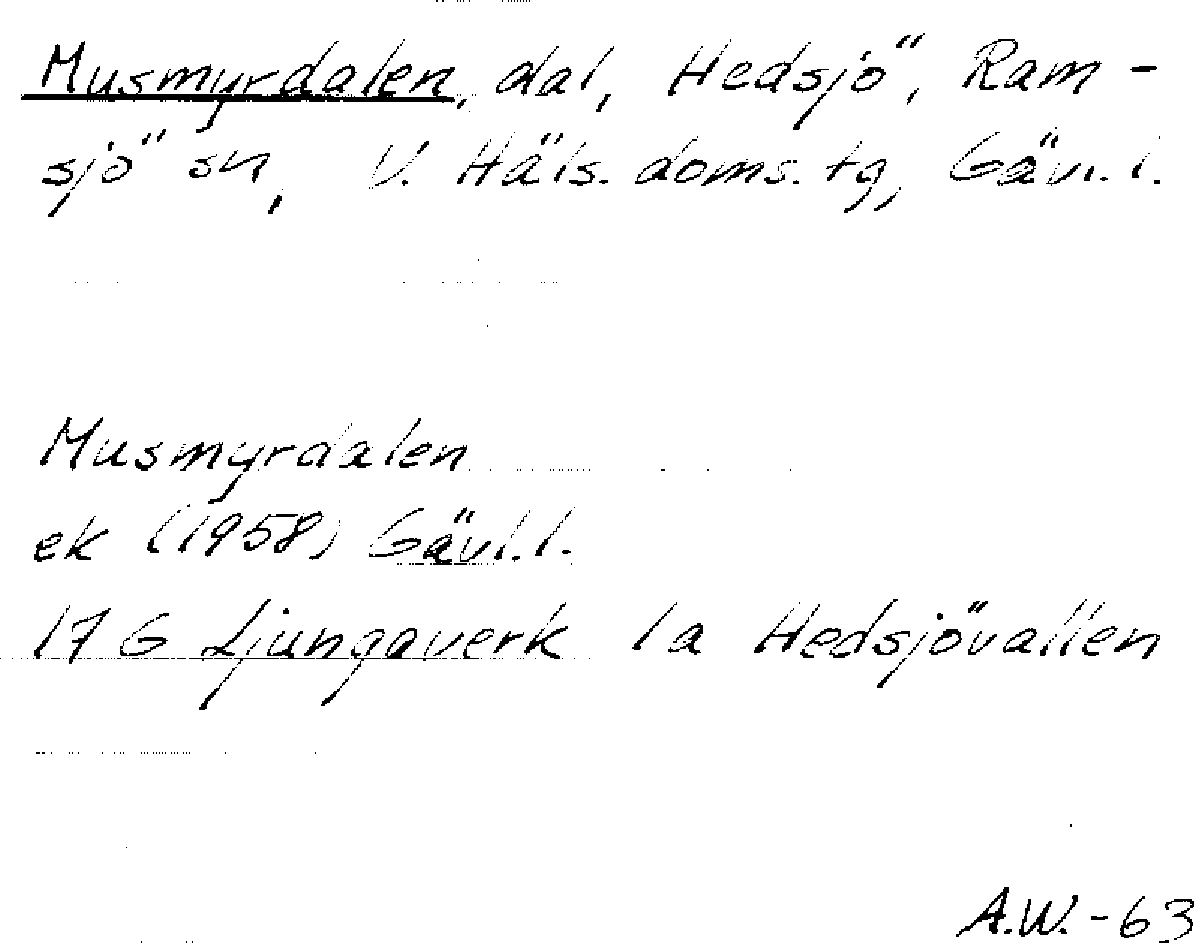 Musmyrdalen, dal, Hedsjö, Ram-
sjö sn, V. Häls. doms. tg, Gävl. l.
Musmyrdalen
ek (1958) Gävl. l.
17 G Ljungaverk 1a Hedsjövallen
A.W.-63